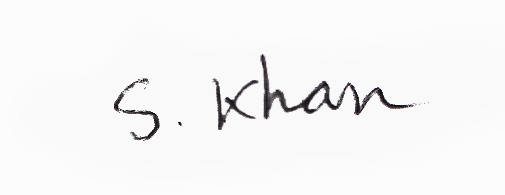 S. Khan